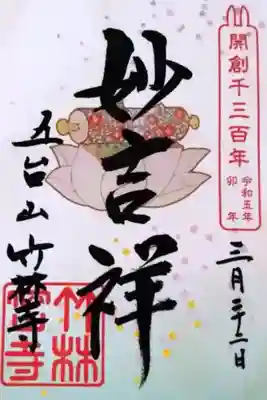 開創千三百年
令和五年
卯年
三月二十二日
妙吉祥
五台山 竹林寺
竹林
寺